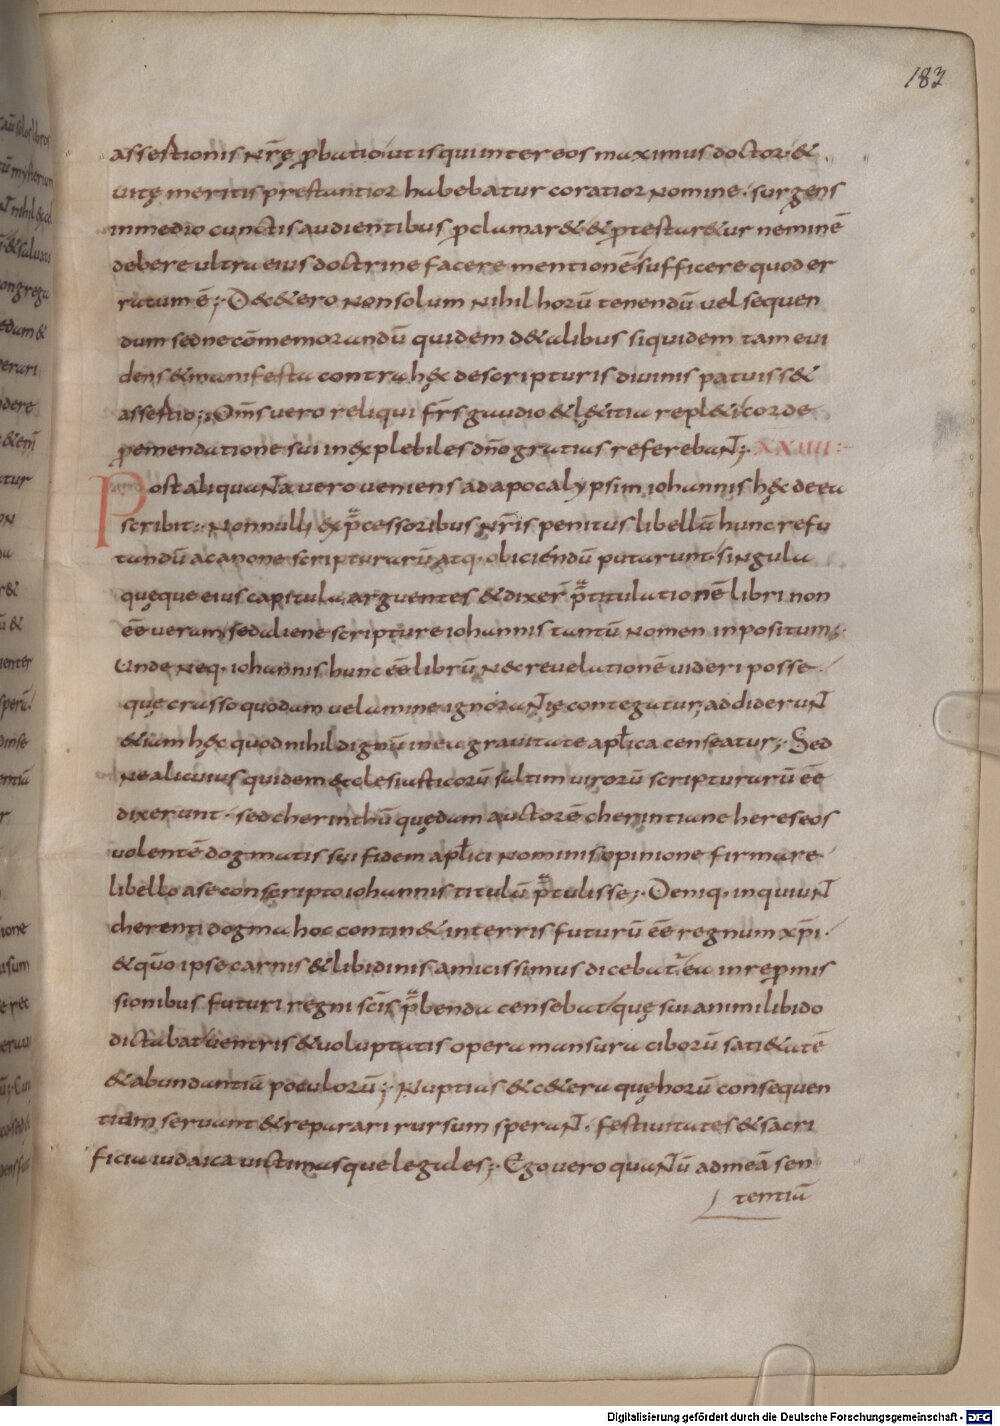 183
assertionis nr̄ę ꝓbatio ut is qui inter eos maximus doctor &
uitę meritis prestantior habebatur coratior nomine· surgens
in medio cunctis audientibus ꝓclamar& & ꝓtestar&ur neminē
debere ultra eius doctrine facere mentionē sufficere quod er
ratum ē;· D& &ero non solum nihil horū tenendū uel sequen
dum sed ne cōmemorandū quidem d& alibus siquidem tam eui
dens & manifesta contra hęc de scripturis diuinis patuiss&
assertio;· Om̄s uero reliqui fr̄s gaudio & lę&itia repl&i corde
ꝑ emendatione sui inexplebiles dn̄o gratias referebant;· XXIIII:-
Post aliquanta uero ueniens ad apocalypsim iohannis hęc de ea
scribit:· Nonnulli ex p̄cessoribus nr̄is penitus libellū hunc refu
tandū a canone scripturarū atq· obiciendū putarunt· singula
quęque eius capitula arguentes & dixer̄ p̄titulationē libri non
ēē ueram sed aliene scripture iohannis tantū nomen inpositum;·
Unde neq· iohannis hunc ēē librū nec reuelationē uideri posse·
quę crasso quodam uelamine ignorantię contegatur, addiderunt
&iam hęc quod nihil dignū in ea grauitate apl̄ica censeatur;· Sed
ne alicuius quidem ecclesiasticorū saltim uirorū scripturarū ēē
dixerunt· sed cherinthū quędam auctorē cherintiane hereseos
uolentē dogmatis sui fidem apl̄ici nominis opinione firmare·
libello a se conscripto iohannis titulū p̄tulisse;· Deniq· inquiunt
cherenti dogma hoc contin& in terris futurū ēē regnum xp̄i·
& quō ipse carnis & libidinis amicissimus dicebat ea in reꝓmis
sionibus futuri regni sc̄is p̄benda censebat quę sui animi libido
dictabat uentris & uoluptatis opera mansura ciborū sati&atē
& abundantiā poculorū;· Nuptias & c&era quę horū consequen
tiam seruant & reparari rursum sperant· festiuitates & sacri
ficia iudaica uictimasque legales;· Ego uero quantū ad meā sen
tentiā
Digitalisierung gefördert durch die Deutsche Forschungsgemeinschaft - DFG